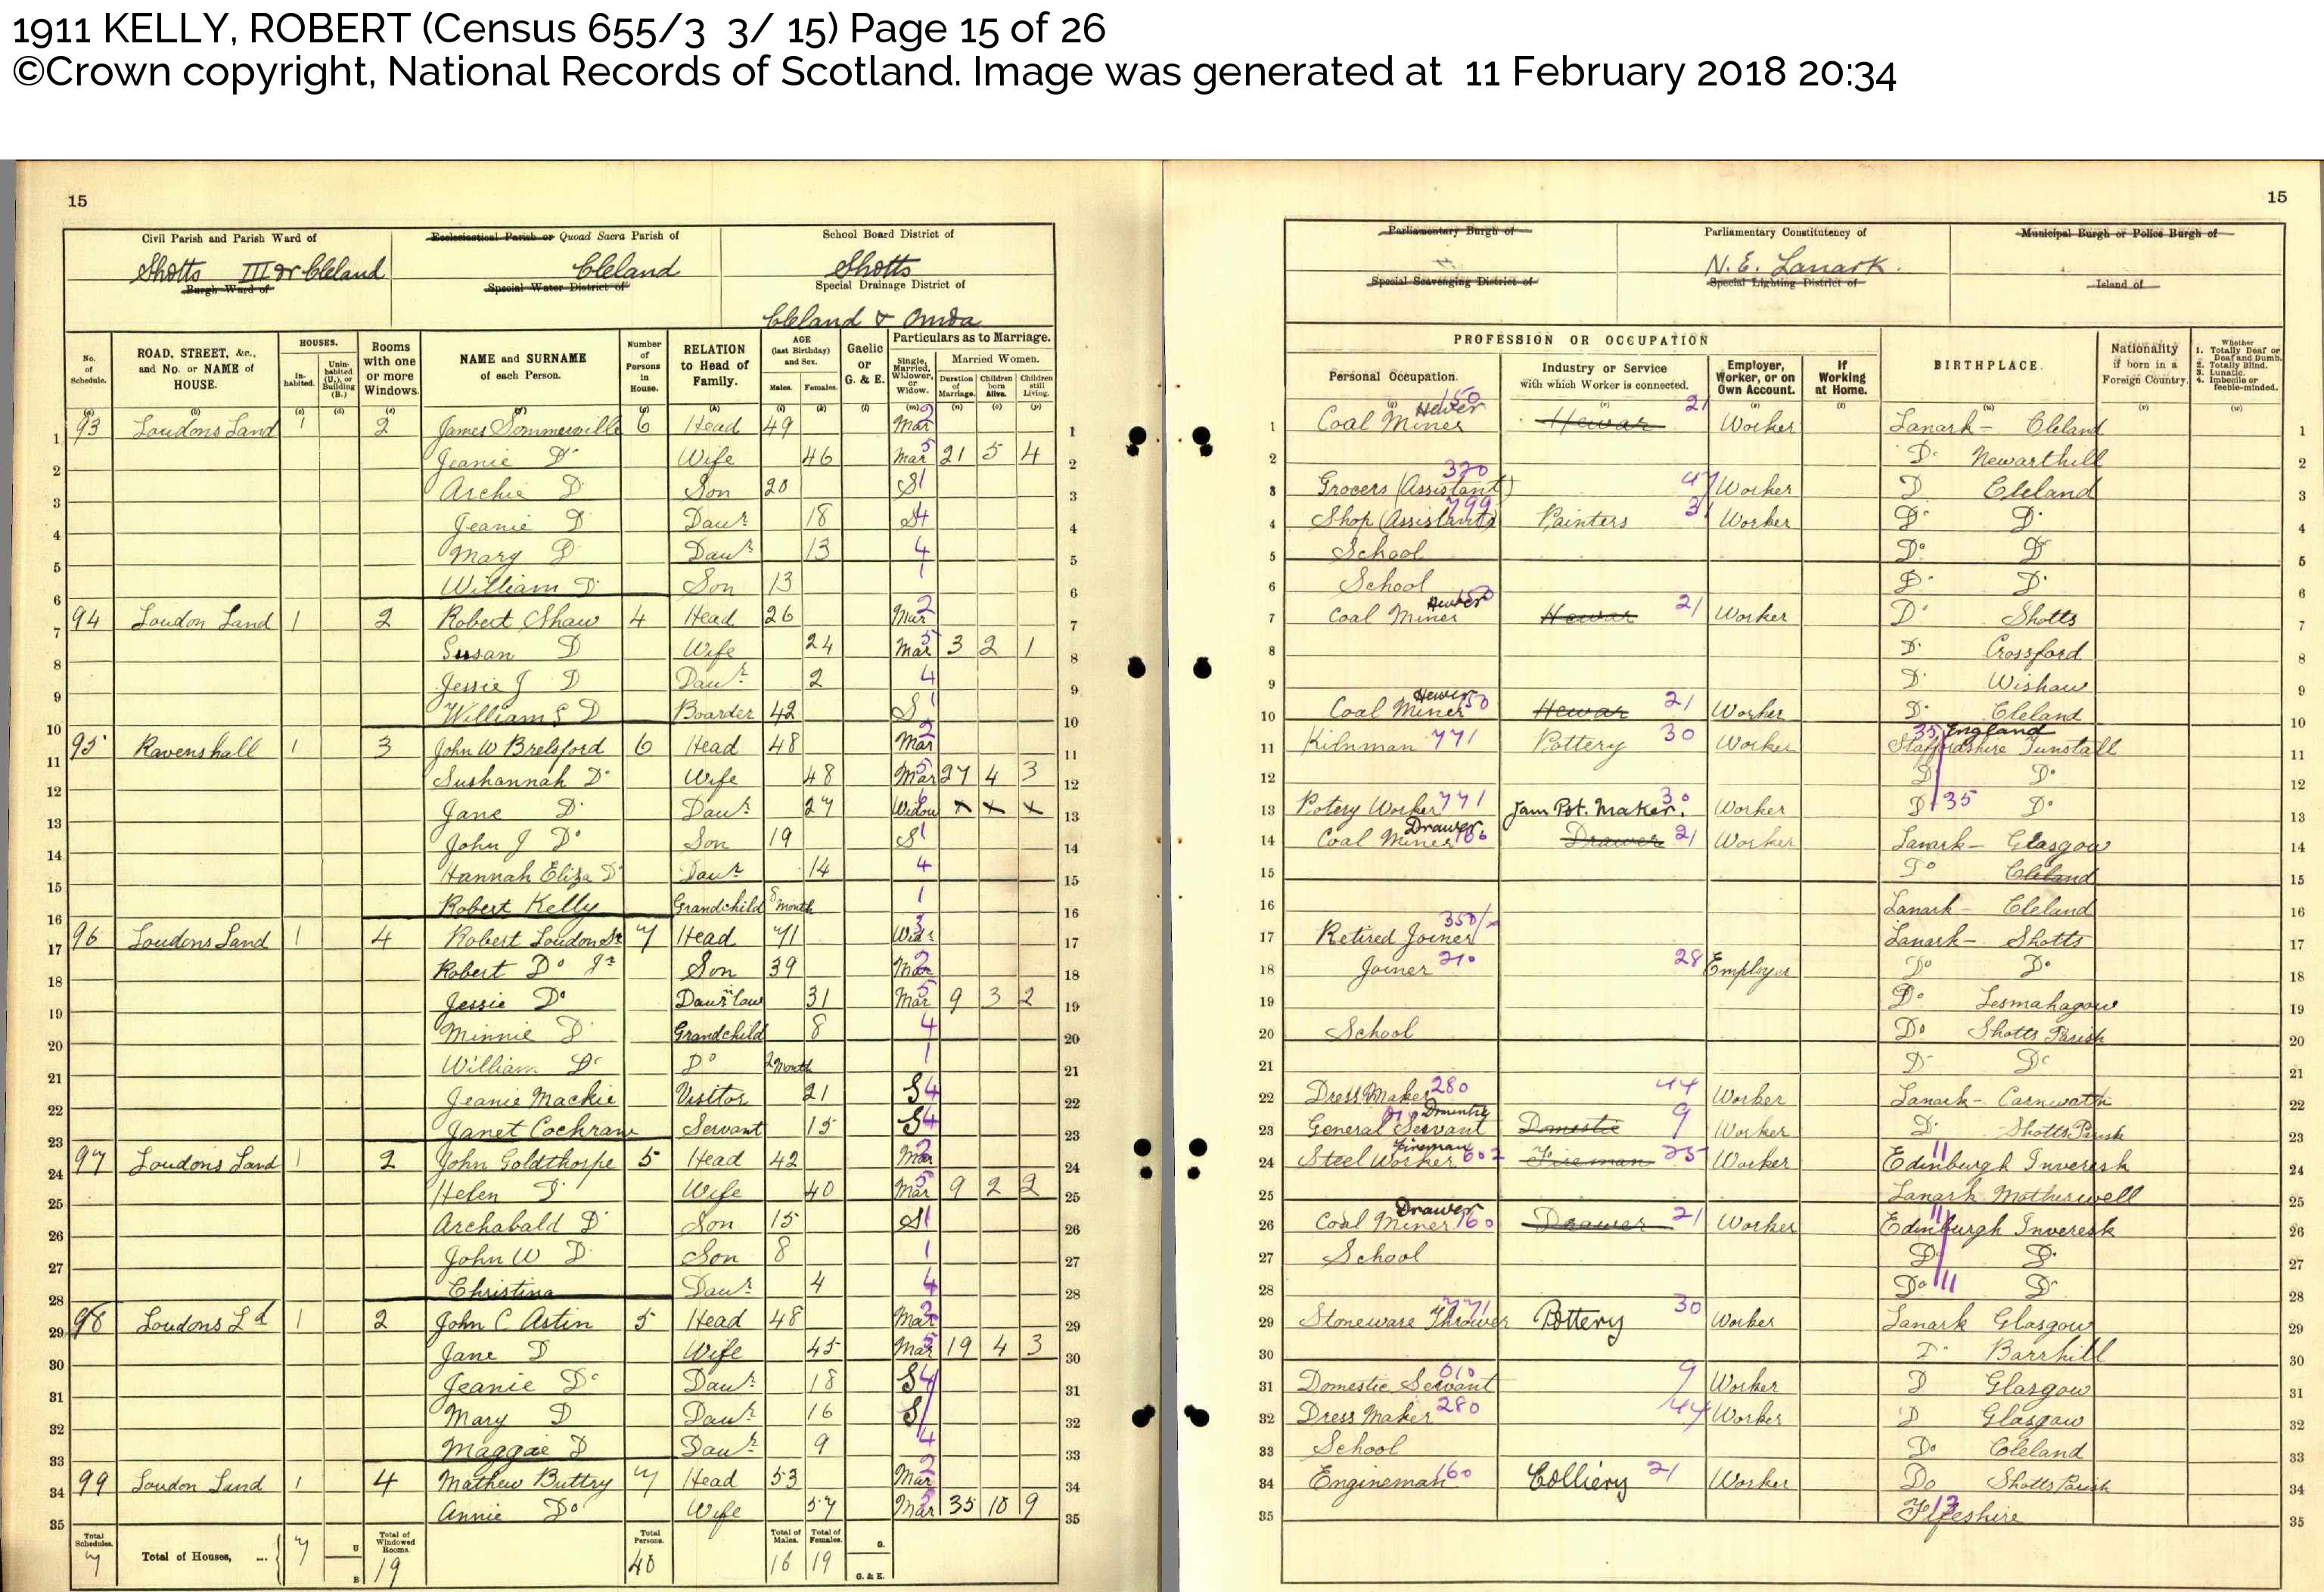 1911 KELLY, ROBERT (Census 655/3 3/ 15) Page 15 of 26
©Crown copyright, National Records of Scotland. Image was generated at 11 February 2018 20:34
15
Civil Parish and Parish Ward of Ecclesiastical Parish or Quoad Sacra Parish of School Board District of
Shotts III or Cleland Cleland Shotts
Burgh Ward of Special Water District of Special Drainage District of
Cleland & Omoa
No. of Schedule. ROAD, STREET, &c., and No. or NAME of HOUSE. HOUSES. Inhabited. Uninhabited (U.), or Building (B.) Rooms with one or more Windows. NAME and SURNAME of each Person. Number of Persons in House. RELATION to Head of Family. AGE (last Birthday) and Sex. Males. Females. Gaelic or G. & E. Particulars as to Marriage. Single, Married, Widower, or Widow. Married Women. Duration of Marriage. Children born Alive. Children still Living.
1 93 Loudons Land 1 2 James Sommerville 6 Head 49 Mar 2 1
2 Jeanie D° Wife 46 Mar 5 21 5 4 2
3 Archie D Son 20 S 1 3
4 Jeanie D Daur 18 S 4 4
5 Mary D Daur 13 4 5
6 William D Son 13 1 6
7 94 Loudon Land 1 2 Robert Shaw 4 Head 26 Mar 2 7
8 Susan D Wife 24 Mar 5 3 2 1 8
9 Jessie J D Daur 2 4 9
10 William S D Boarder 42 S 1 10
11 95 Ravenshall 1 3 John W Brelsford 6 Head 48 Mar 2 11
12 Sushannah D° Wife 48 Mar 5 27 4 3 12
13 Jane D° Daur 27 Widow 6 x x x 13
14 John J D° Son 19 S 1 14
15 Hannah Eliza D° Daur 14 4 15
16 Robert Kelly Grandchild 8 month 1 16
17 96 Loudons Land 1 4 Robert Loudon Sr 7 Head 71 Widr 3 17
18 Robert D° Jr Son 39 Mar 2 18
19 Jessie D° Daur in law 31 Mar 5 9 3 2 19
20 Minnie D° Grandchild 8 4 20
21 William D° D° 2 Month 1 21
22 Jeanie Mackie Visitor 21 S 4 22
23 Janet Cochrane Servant 15 S 4 23
24 97 Loudons Land 1 2 John Goldthorpe 5 Head 42 Mar 2 24
25 Helen D° Wife 40 Mar 5 9 2 2 25
26 Archabald D° Son 15 S 1 26
27 John W D° Son 8 1 27
28 Christina Daur 4 4 28
29 98 Loudons Ld 1 2 John C Astin 5 Head 48 Mar 2 29
30 Jane D Wife 45 Mar 5 19 4 3 30
31 Jeanie D° Daur 18 S 4 31
32 Mary D Daur 16 S 32
33 Maggie D Daur 9 4 33
34 99 Loudon Land 1 4 Mathew Buttry 7 Head 53 Mar 2 34
35 Annie Do Wife 57 Mar 5 35 10 9 35
Total Schedules. 7 Total of Houses, ... 7 U B Total of Windowed Rooms. 19 Total Persons. 40 Total of Males. 16 Total of Females. 19 G. G. & E.
15
Parliamentary Burgh of Parliamentary Constitutency of Municipal Burgh or Police Burgh of
N. E. Lanark.
Special Scavenging District of Special Lighting District of Island of
PROFESSION OR OCCUPATION
Personal Occupation. Industry or Service with which Worker is connected. Employer, Worker, or on Own Account. If Working at Home. BIRTHPLACE. Nationality if born in a Foreign Country. Whether 1. Totally Deaf or Deaf and Dumb. 2. Totally Blind. 3. Lunatic. 4. Imbecile or feeble-minded.
1 Coal Miner Hewer 150 Hewar 21 Worker Lanark - Cleland 1
2 D° Newarthill 2
3 Grocers (Assistant) 320 47 Worker D Cleland 3
4 Shop (Assistants) 799 Painters 31 Worker D° D° 4
5 School D° D 5
6 School D° D° 6
7 Coal Miner Hewer 150 Hewar 21 Worker D° Shotts 7
8 D° Crossford 8
9 D° Wishaw 9
10 Coal Miner Hewer 150 Hewar 21 Worker D° Cleland 10
11 Kilnman 771 Pottery 30 Worker 35 England Staffordshire Tunstall 11
12 D° D° 12
13 Potery Worker 771 Jam Pot. Maker. 30 Worker D° 35 D° 13
14 Coal Miner Drawer 160 Drawer 21 Worker Lanark - Glasgow 14
15 D° Cleland 15
16 Lanark Cleland 16
17 Retired Joiner 350/x Lanark - Shotts 17
18 Joiner 210 28 Employer D° D° 18
19 D° Lesmahagow 19
20 School Do Shotts Parish 20
21 D° D° 21
22 Dress Maker 280 44 Worker Lanark - Carnwath 22
23 General Servant Domestic 010 Domestic 9 Worker D° Shotts Parish 23
24 Steel Worker Fireman 602 Fireman 25 Worker Edinburgh Inveresk 11 24
25 Lanark Motherwell 25
26 Coal Miner Drawer 160 Drawer 21 Worker Edinburgh Inveresk 11 26
27 School D° D° 27
28 Do 11 D° 28
29 Stoneware Thrower 771 Pottery 30 Worker Lanark Glasgow 29
30 D° Barrhill 30
31 Domestic Servant 010 9 Worker D Glasgow 31
32 Dress Maker 280 44 Worker D Glasgow 32
33 School Do Cleland 33
34 Engineman 160 Colliery 21 Worker Do Shotts Parish 34
35 Fifeshire 13 35